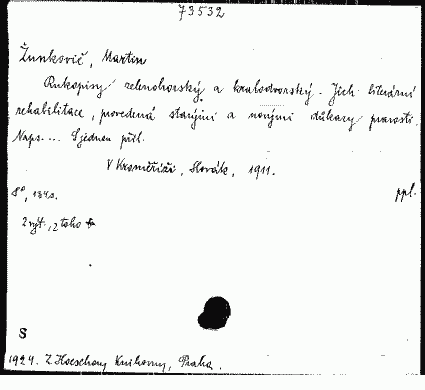 73532
Žunkovič, Martin
Rukopisy zelenohorský a kralodvorský. Jich literární
rehabilitace, provedená starými a novými důkazy pravosti.
Naps.... S jednou příl.
V Kroměříži, Slovák, 1911.
8°, 134 s. ppl.
2 výt., z toho
S
1924. Z Hoeschovy Knihovny, Praha.